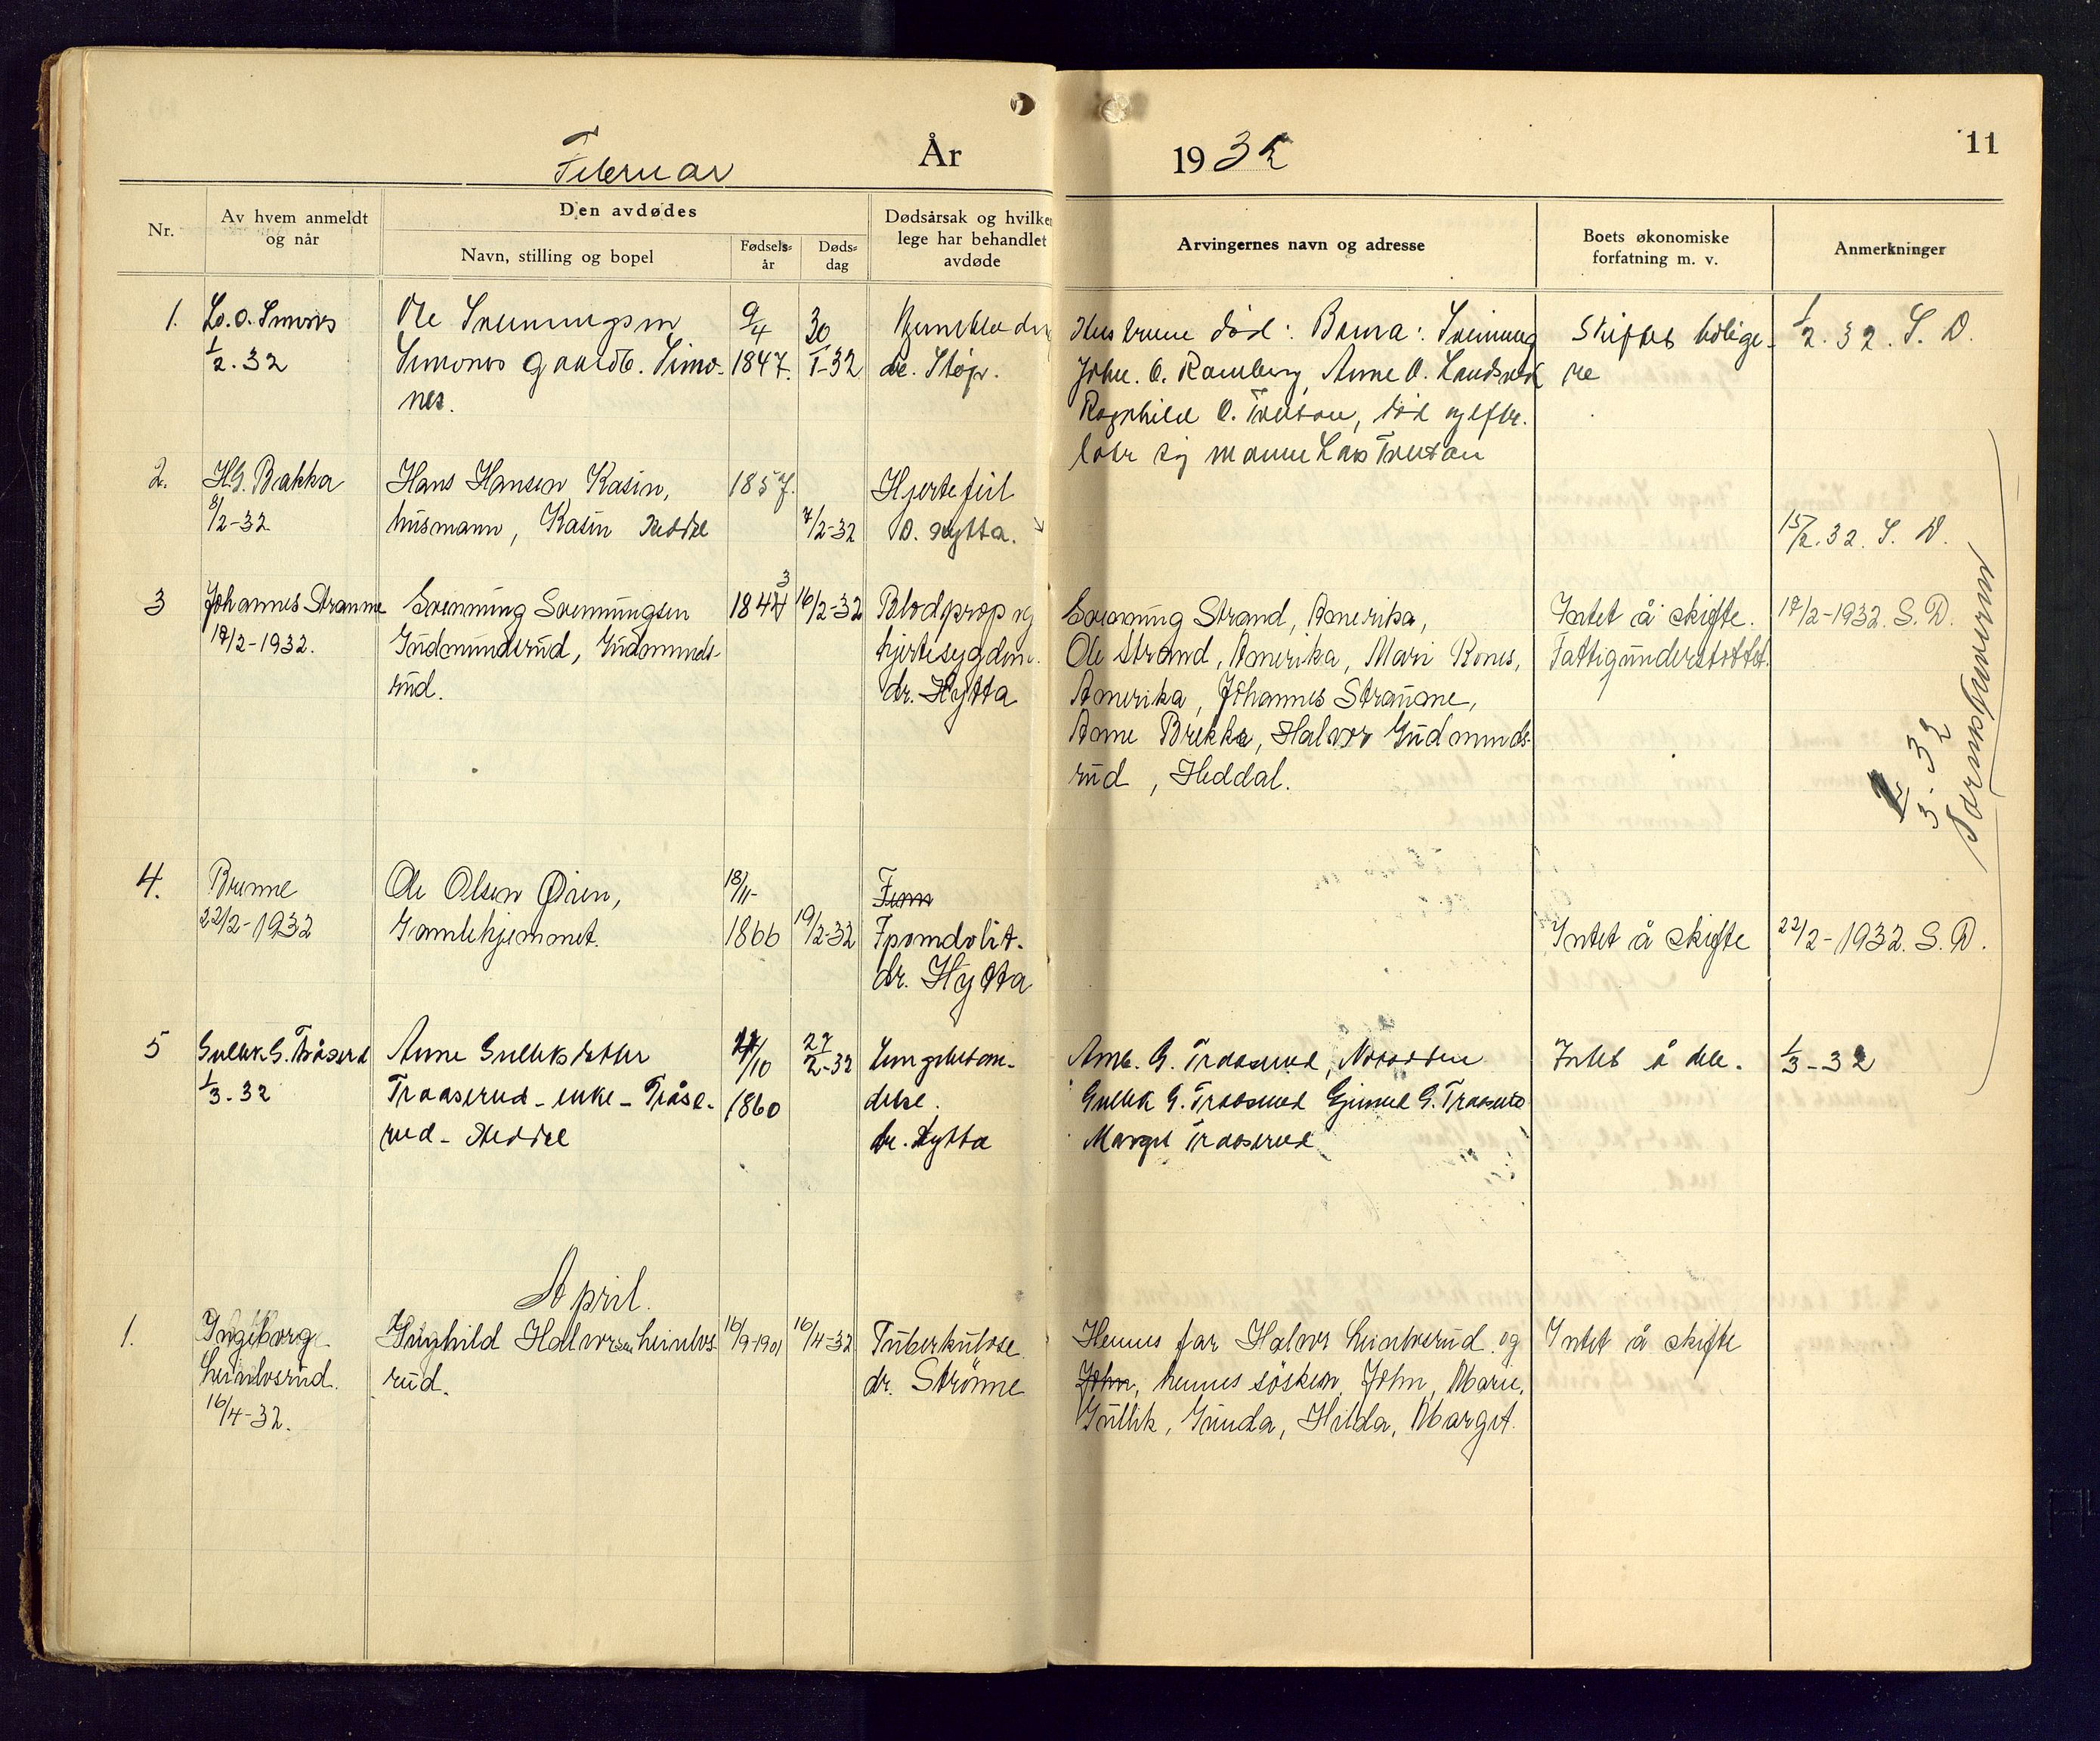 Februar
År
1932
11
Nr.
Av hvem anmeldt
og når
Den avdødes
Navn, stilling og bopel
Fødsels-
år
Døds-
dag
Dødsårsak og hvilken
lege har behandlet
avdøde
Arvingernes navn og adresse
Boets økonomiske
forfatning m. v.
Anmerkninger
1.
1/2.32
Ole
Simones Gaardb. Simo-
nes.
9/4
1847.
30
I-32
Hustruen død: Barna:
John. O. Ramberg, Anne O.
Ragnhild O.
Skiftet tidlige-
re
1/2.32. S. D.
2.
H.G. Bakka
8/2-32
Hans Hansen Kasin,
husmann, Kasin Heddal
1857.
7/2-32
Hjertefeil
D. Hytta.
15/2.32. S. D.
3
Johannes Straume
17/2-1932.
Svenning Svenningsen
Gudmundsrud, Gudmunds-
rud.
16/2-32
Blodprop og
hjertesygdom.
dr. Hytta
Svenning Strand, Amerika,
Ole Strand, Amerika, Mari Rones,
Amerika, Johannes Straume,
Anne Brekke, Halvor Gudmunds-
rud, Heddal.
Intet å skifte.
Fattigunderstøttet.
17/2-1932. S. D.
3-32
4.
Brenne
22/2-1932
Ole Olsen Øien,
Gamlehjemmet.
18/11-
1866
19/2-32
dr. Hytta
Intet å skifte
22/2-1932. S. D.
5
Gullek G. Tråserud
1/3-32
Anne Gulleksdatter
Traaserud - enke - Tråse-
rud - Heddal
/10
1860
27
2-32
Lungebetæn-
delse.
dr. Hytta
G. Traaserud, Notodden
Gullek G. Traaserud G. Traaserud
Margit Traaserud
Intet å dele.
1/3-32
April.
1.
Ingeborg
Leinlosrud.
16/4-32.
Halvorsen Leinlos-
rud.
16/9-1901
16/4-32
Tuberkulose
dr. Strömme
Hennes far Halvor og
John, hennes söskem John, Marie,
Gullik, Gunda, Hilda, Margit.
Intet å skifte